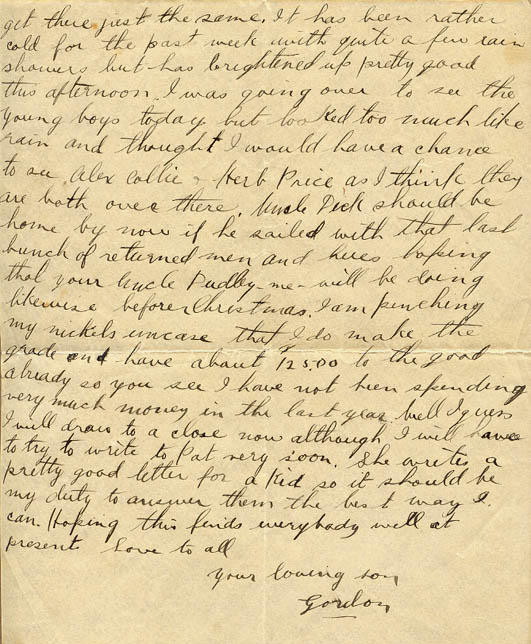 get there just the same. It has been rather
cold for the past week with quite a few rain
showers but has brightened up pretty good
this afternoon. I was going over to see the
Young boys today but looked too much like
rain and thought I would have a chance
to see Alex Collie & Herb Price as I think they
are both over there. Uncle Dick should be
home by now if he sailed with that last
bunch of returned men and heres hoping
that your Uncle Dudley-me-will be doing
likewise before Christmas. I am pinching
my nickels uncase that I do make the
grade and have about $125.00 to the good
already so you see I have not been spending
very much money in the last year. Well I guess
I will draw to a close now although I will have
to try to write to Pat very soon. She writes a
pretty good letter for a kid so it should be
my duty to answer them the best way I
can. Hoping this finds everybody well at
present Love to all
Your loving son
Gordon